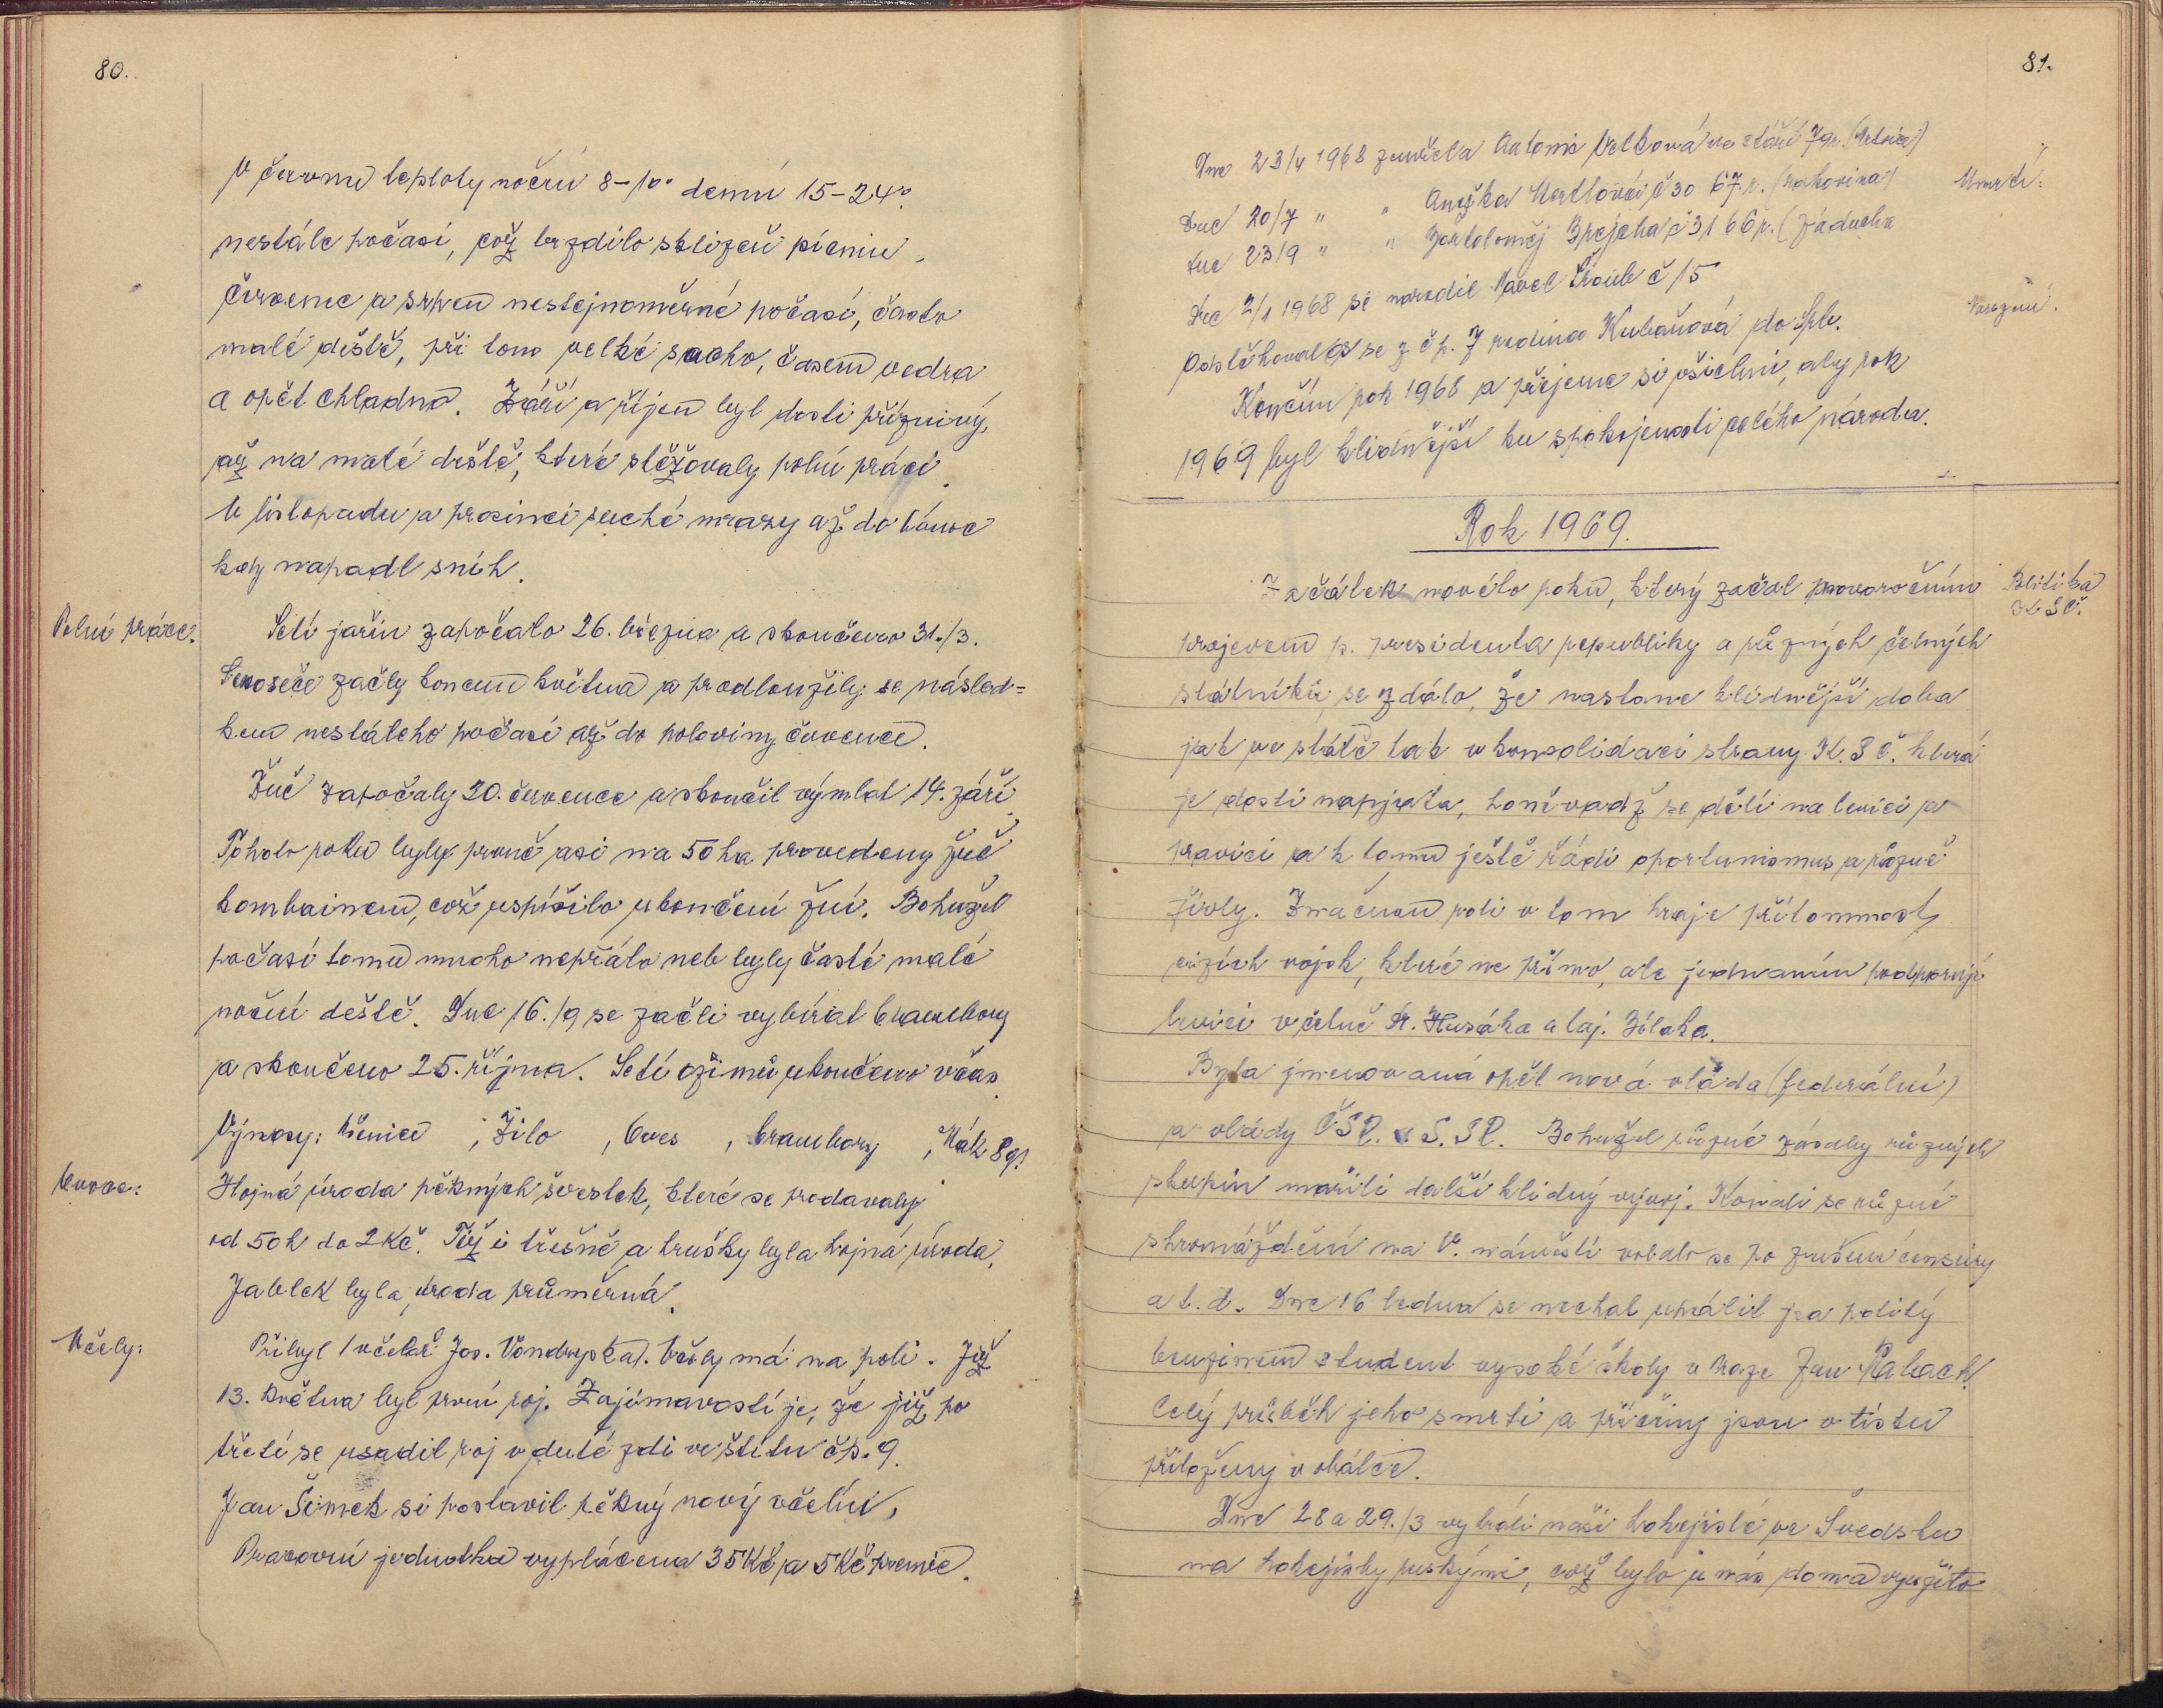 80.
V červnu teploty noční 8-10° denní 15-24°.
nestálé počasí, což brzdilo sklizeň pícnin.
Červenec a srpen nestejnoměrné počasí, často
malé deště, při tom velké sucho, časem vedra
a opět chladno. Září a říjen byl dosti příznivý,
až na malé deště, které stěžovaly polní práci.
V listopadu a prosinci suché mrazy až do vánoc
kdy napadl sníh.
Polní práce:
Setí jařin započato 26. března a skončeno 31./3.
Senoseče začly koncem května a prodloužily se násled=
kem nestálého počasí až do poloviny července.
Žně započaly 20. července a skončil výmlat 14. září.
Tohoto roku byly prvně asi na 50 ha provedeny žně
kombainem, což uspíšilo ukončení žní. Bohužel
počasí tomu mnoho nepřálo neb byly časté malé
noční deště. Dne 16./9 se začli vybírat brambory
a skončeno 25. října. Setí ozimů ukončeno včas.
Výnosy: Pšenice , Žito , Oves , brambory , Mák 8q.
Ovoce:
Hojná úroda pěkných švestek, které se prodavaly
od 50 h do 2 Kč. Též i třešně a hrušky byla hojná úroda.
Jablek byla úroda průměrná.
Včely:
Přibyl 1 včelař Jos. Vondryska. Včely má na poli. Již
13. Května byl první roj. Zajímavostí je, že již po
třetí se usadil roj v duté zdi ve štítu čp. 9.
Jan Šimek si postavil pěkný nový včelín.
Pracovní jednotka vyplácena 35 Kč a 5 Kč premie.
81.
Dne 23/4 1968 zemřela Antonie Velková ve stáří 79 r.
Úmrtí:
Dne 20/7 " " Anežka č 30 67 r. (rakovina)
dne 23/9 " " Bartoloměj Brejcha č 31 66 r. (záducha
Dne 2/1 1968 se narodil Pavel Šroub č 15
Narození.
Odstěhovala se z čp. 7 rodina Kubaňova do
Končím rok 1968 a přejeme si všichni, aby rok
1969 byl klidnější ku spokojenosti celého národa.
Rok 1969.
Politika
KSČ.
Začátek nového roku, který začal novoročním
projevem p. presidenta republiky a různých čelných
státníků se zdálo, že nastane klidnější doba
jak ve státě tak v konsolidaci strany K.S.Č. která
je dosti napjata, poněvadž se dělí na levici a
pravici a k tomu ještě řádí oportunismus a různé
živly. Značnou roli v tom hraje přítomnost
cizích vojsk, které ne přímo, ale jednáním podporují
levici v čelně Dr. Husáka a taj. Biľaka.
Byla jmenovaná opět nová vláda (federální)
a vlády ČSR. a S.SR. Bohužel různé zásahy různých
skupin mařili další klidný vývoj. Konali se různé
shromáždění na V. náměstí volalo se po zrušení censury
a t. d. Dne 16 ledna se nechal upálit a politý
benzinem student vysoké školy v Praze Jan Palach.
Celý průběh jeho smrti a příčiny jsou v tisku
přiloženy v obálce.
Dne 28 a 29./3 vyhráli naši hokejisté ve Švedsku
na hokejisty ruskými, což bylo u nás doma využito